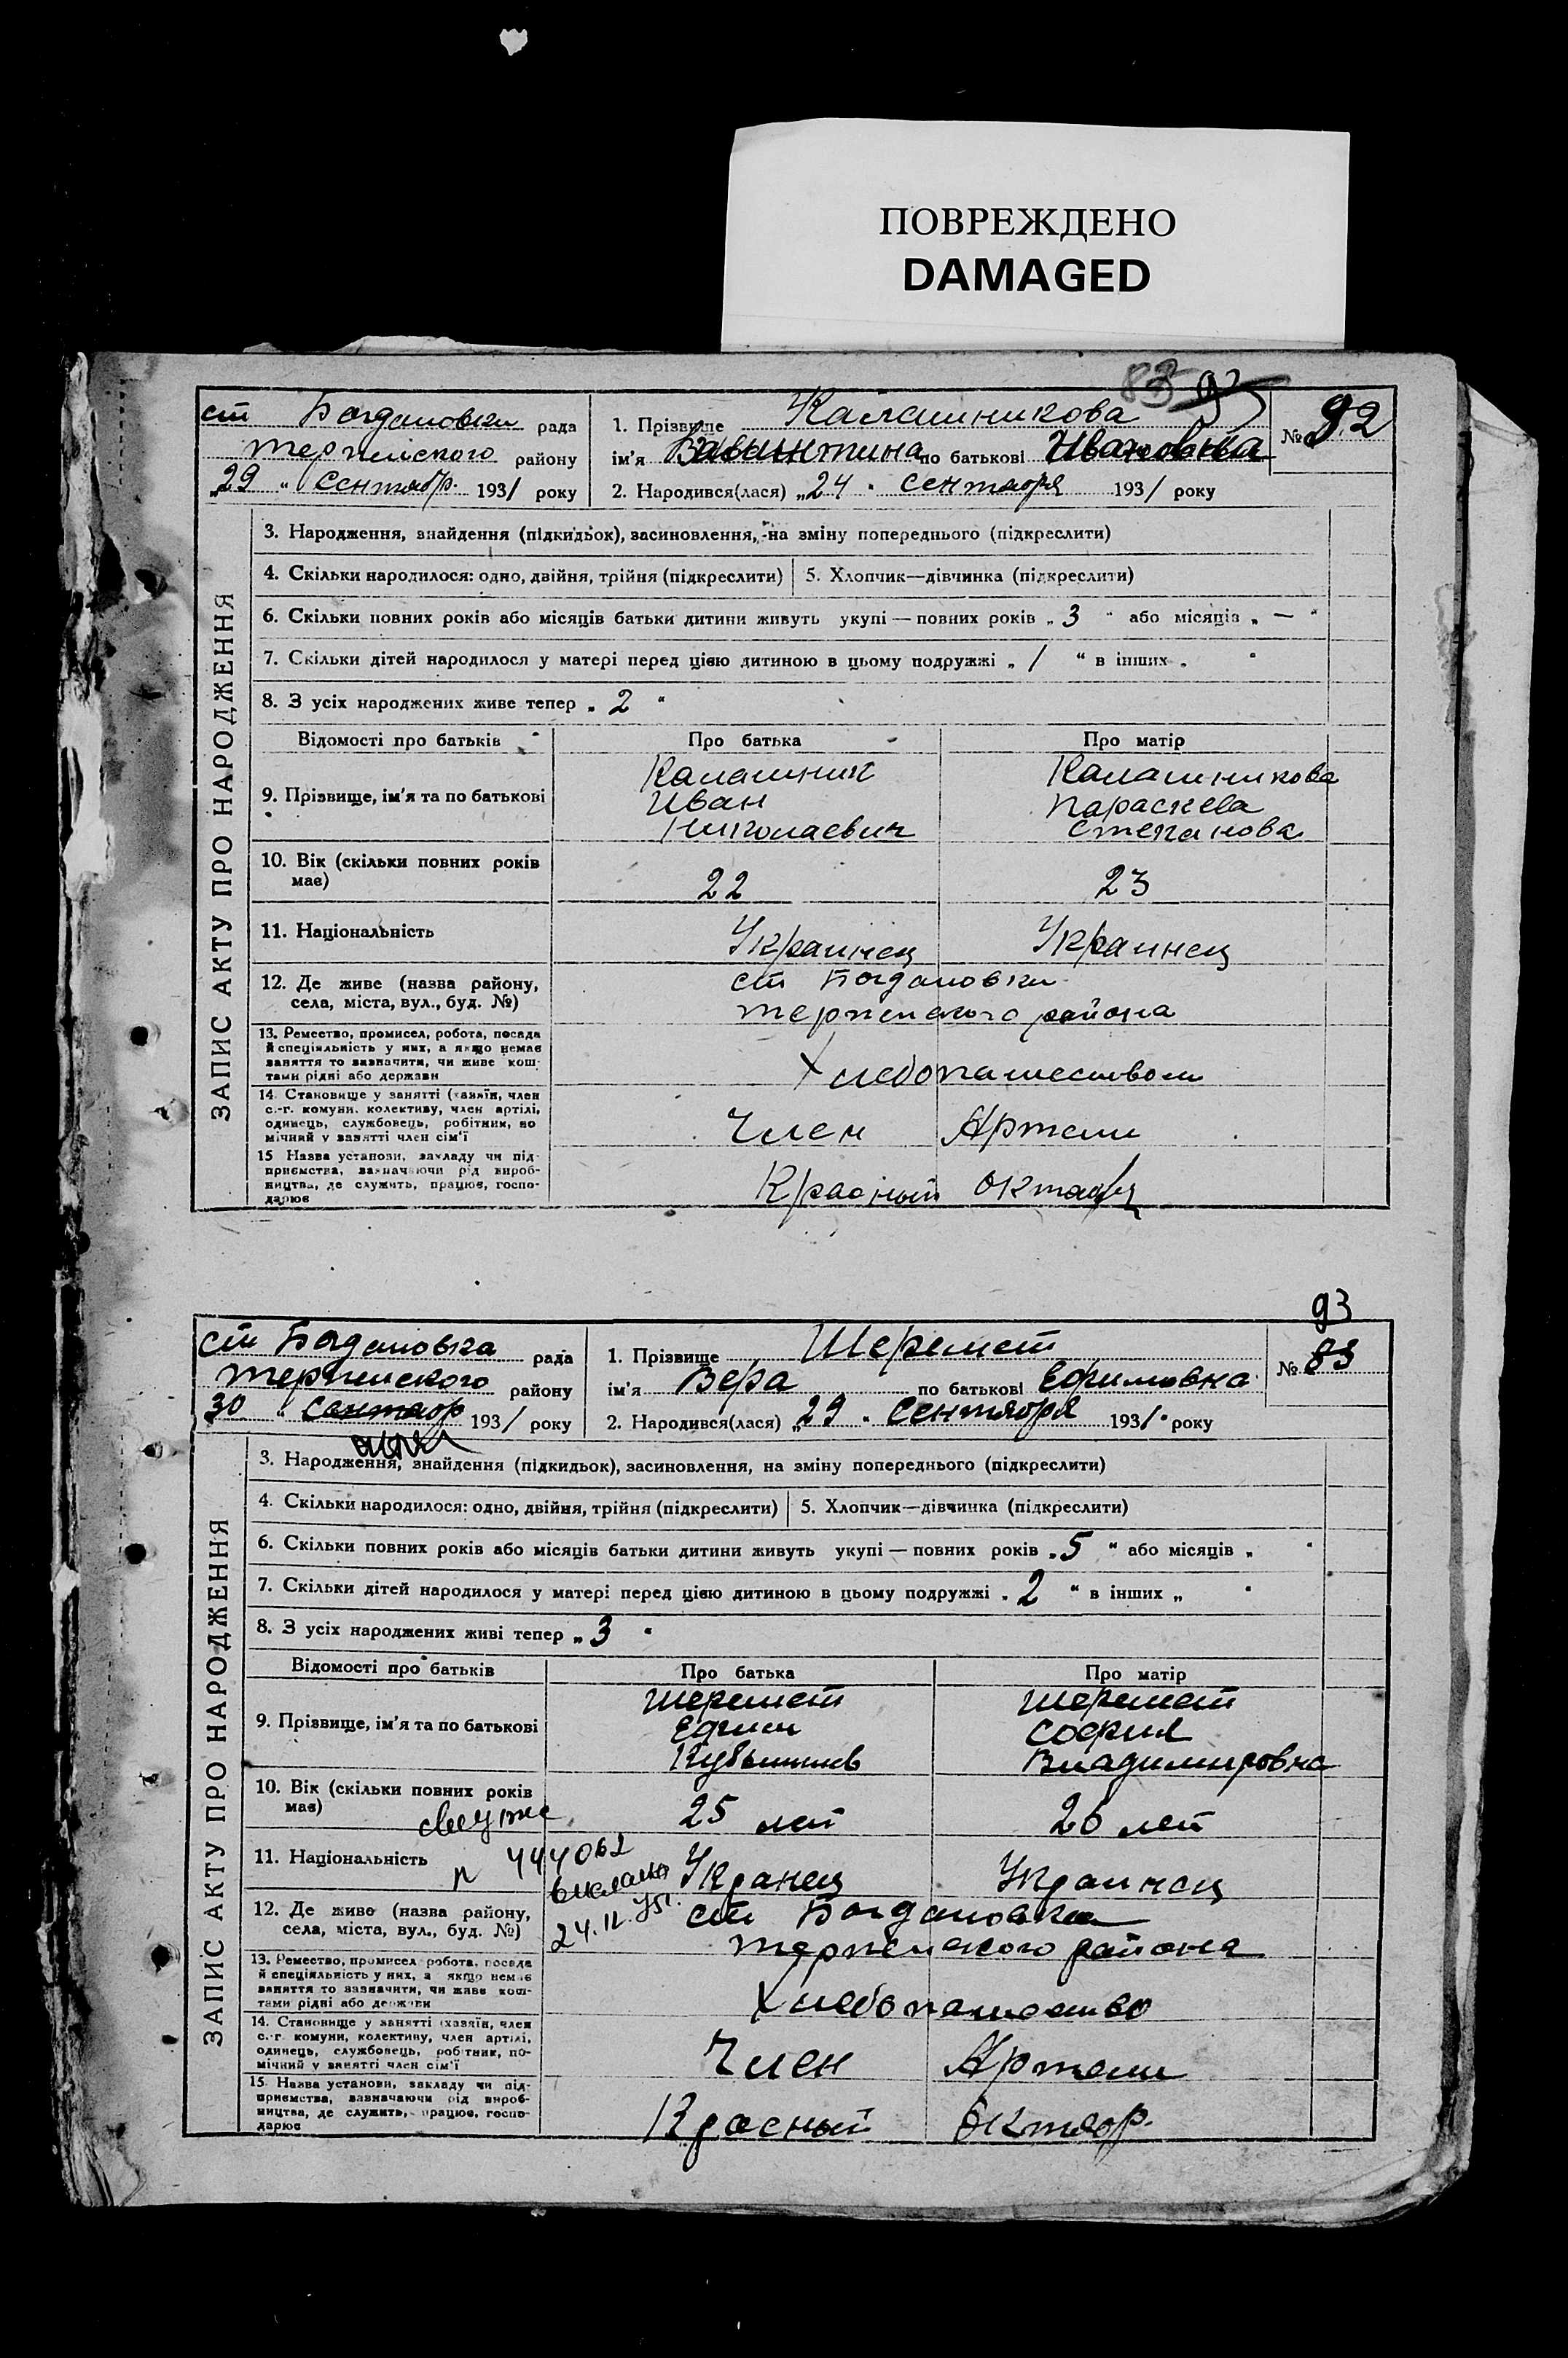 ПОВРЕЖДЕНО
DAMAGED
93
ст Богдановки рада
терпенского району
„29 " Сентябр. 1931 року
1. Прізвище Калашникова
ім'я по батькові Ивановна
2. Народився(лася) „24 " Сентября 1931 року
№ 92
ЗАПИС АКТУ ПРО НАРОДЖЕННЯ
3. Народження, знайдення (підкидьок), засиновлення, на зміну попереднього (підкреслити)
4. Скільки народилося: одно, двійня, трійня (підкреслити) 5. Хлопчик—дівчинка (підкреслити)
6. Скільки повних років або місяців батьки дитини живуть укупі — повних років „ 3 " або місяців „ — "
7. Скільки дітей народилося у матері перед цією дитиною в цьому подружжі „ 1 " в інших „ "
8. З усіх народжених живе тепер „ 2 "
Відомості про батьків Про батька Про матір
9. Прізвище, ім'я та по батькові
Калашник Калашникова
Иван Параскева
Николаевич Степанова
10. Вік (скільки повних років має) 22 23
11. Національність Украинец Украинец
12. Де живе (назва району, ст Богдановки
села, міста, вул., буд. №) терпенского района
13. Ремество, промисел, робота, посада
й спеціяльність у них, а якщо немає
заняття то зазначити, чи живе кош-
тами рідні або держави
Хлебопашеством
14. Становище у занятті (хазяїн, член
с.-г. комуни, колективу, член артілі,
одинець, службовець, робітник, по
мічний у занятті член сім'ї
Член Артели
15 Назва установи, закладу чи під-
приємства, зазначаючи рід вироб-
ництва, де служить, працює, госпо-
дарює
Красный Октябр
93
ст Богдановка рада
терпенского району
30 " Сентябр 1931 року
1. Прізвище Шеремет
ім'я Вера по батькові Ефимовна
2. Народився(лася) „29 " Сентября 1931 року
№ 83
ЗАПИС АКТУ ПРО НАРОДЖЕННЯ
3. Народження, знайдення (підкидьок), засиновлення, на зміну попереднього (підкреслити)
4. Скільки народилося: одно, двійня, трійня (підкреслити) 5. Хлопчик—дівчинка (підкреслити)
6. Скільки повних років або місяців батьки дитини живуть укупі — повних років „ 5 " або місяців „ "
7. Скільки дітей народилося у матері перед цією дитиною в цьому подружжі „ 2 " в інших „ "
8. З усіх народжених живі тепер „ 3 "
Відомості про батьків Про батька Про матір
9. Прізвище, ім'я та по батькові
Шеремет Шеремет
Ефим София
Владимировна
10. Вік (скільки повних років має) 25 лет 26 лет
11. Національність Укранец Украинец
444062
24.II.
12. Де живе (назва району, ст Богдановка
села, міста, вул., буд. №) терпенского района
13. Ремество, промисел робота, посада
й спеціяльність у них, а якщо немає
заняття то зазначити, чи живе кош-
тами рідні або держави
Хлебопашество
14. Становище у занятті (хазяїн, член
с.-г. комуни, колективу, член артілі,
одинець, службовець, робітник, по-
мічний у занятті член сім'ї
Член Артели
15. Назва установи, закладу чи під-
приємства, зазначаючи рід вироб-
ництва, де служить, працює, госпо-
дарює
Красный Октябр.